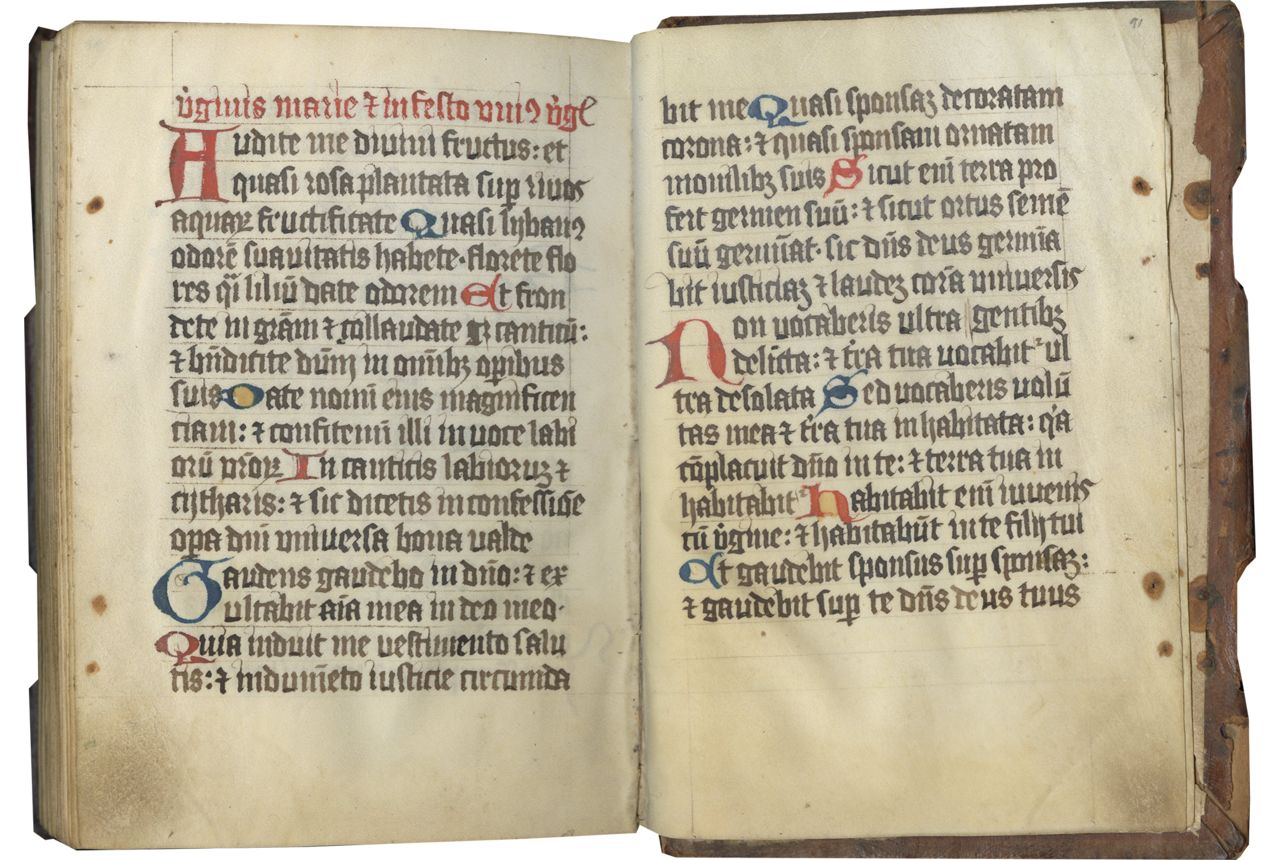 v̾ginis marie ⁊ in festo vniꝰ v̾gĩ
Audite me diuini fructus: et
quasi rosa plantata sup̲ riuos
aquaꝝ fructificate Quasi lybanꝰ
odorē suauitatis habete· florete flo
res qͥ liliū date odorem Et fron
dete in grām ⁊ collaudate canticū:
⁊ bn̄dicite dūm in om̄ibꝫ op̲ibus
suis Date nomi eius magnificen
ciam: ⁊ confitemi illi in uoce labi
orū vr̄oꝝ In canticis labioruꝫ ⁊
cytharis: ⁊ sic dicetis in confessiōe
op̲a dn̄i vniuersa bona ualde
Gaudens gaudebo in dn̄o: ⁊ ex
ultabit aīa mea in deo meo·
Quia induit me vestimento salu
tis: ⁊ indumēto iusticie circumda
91
bit me Quasi sponsaꝫ decoratam
corona: ⁊ quasi sponsam ornatam
monilibꝫ suis Sicut eni terra pro
fert germen suū: ⁊ sicut ortus semē
suū germīat· sic dn̄s deus germīa
bit iusticiaꝫ ⁊ laudeꝫ corā vniuersis
Non uocaberis ultra gentibꝫ
delicta: ⁊ t̄ra tua uocabit᷑ ul
tra desolata Sed uocaberis uolū
tas mea ⁊ t̄ra tua inhabitata: qͥa
cōplacuit dn̄o in te: ⁊ terra tua in
habitabit᷑ Habitabit eni iuuenis
cū v̾gine: ⁊ habitabūt in te filij tui
Et gaudebit sponsus sup̲ sponsaꝫ:
⁊ gaudebit sup̲ te dn̄s deus tuus